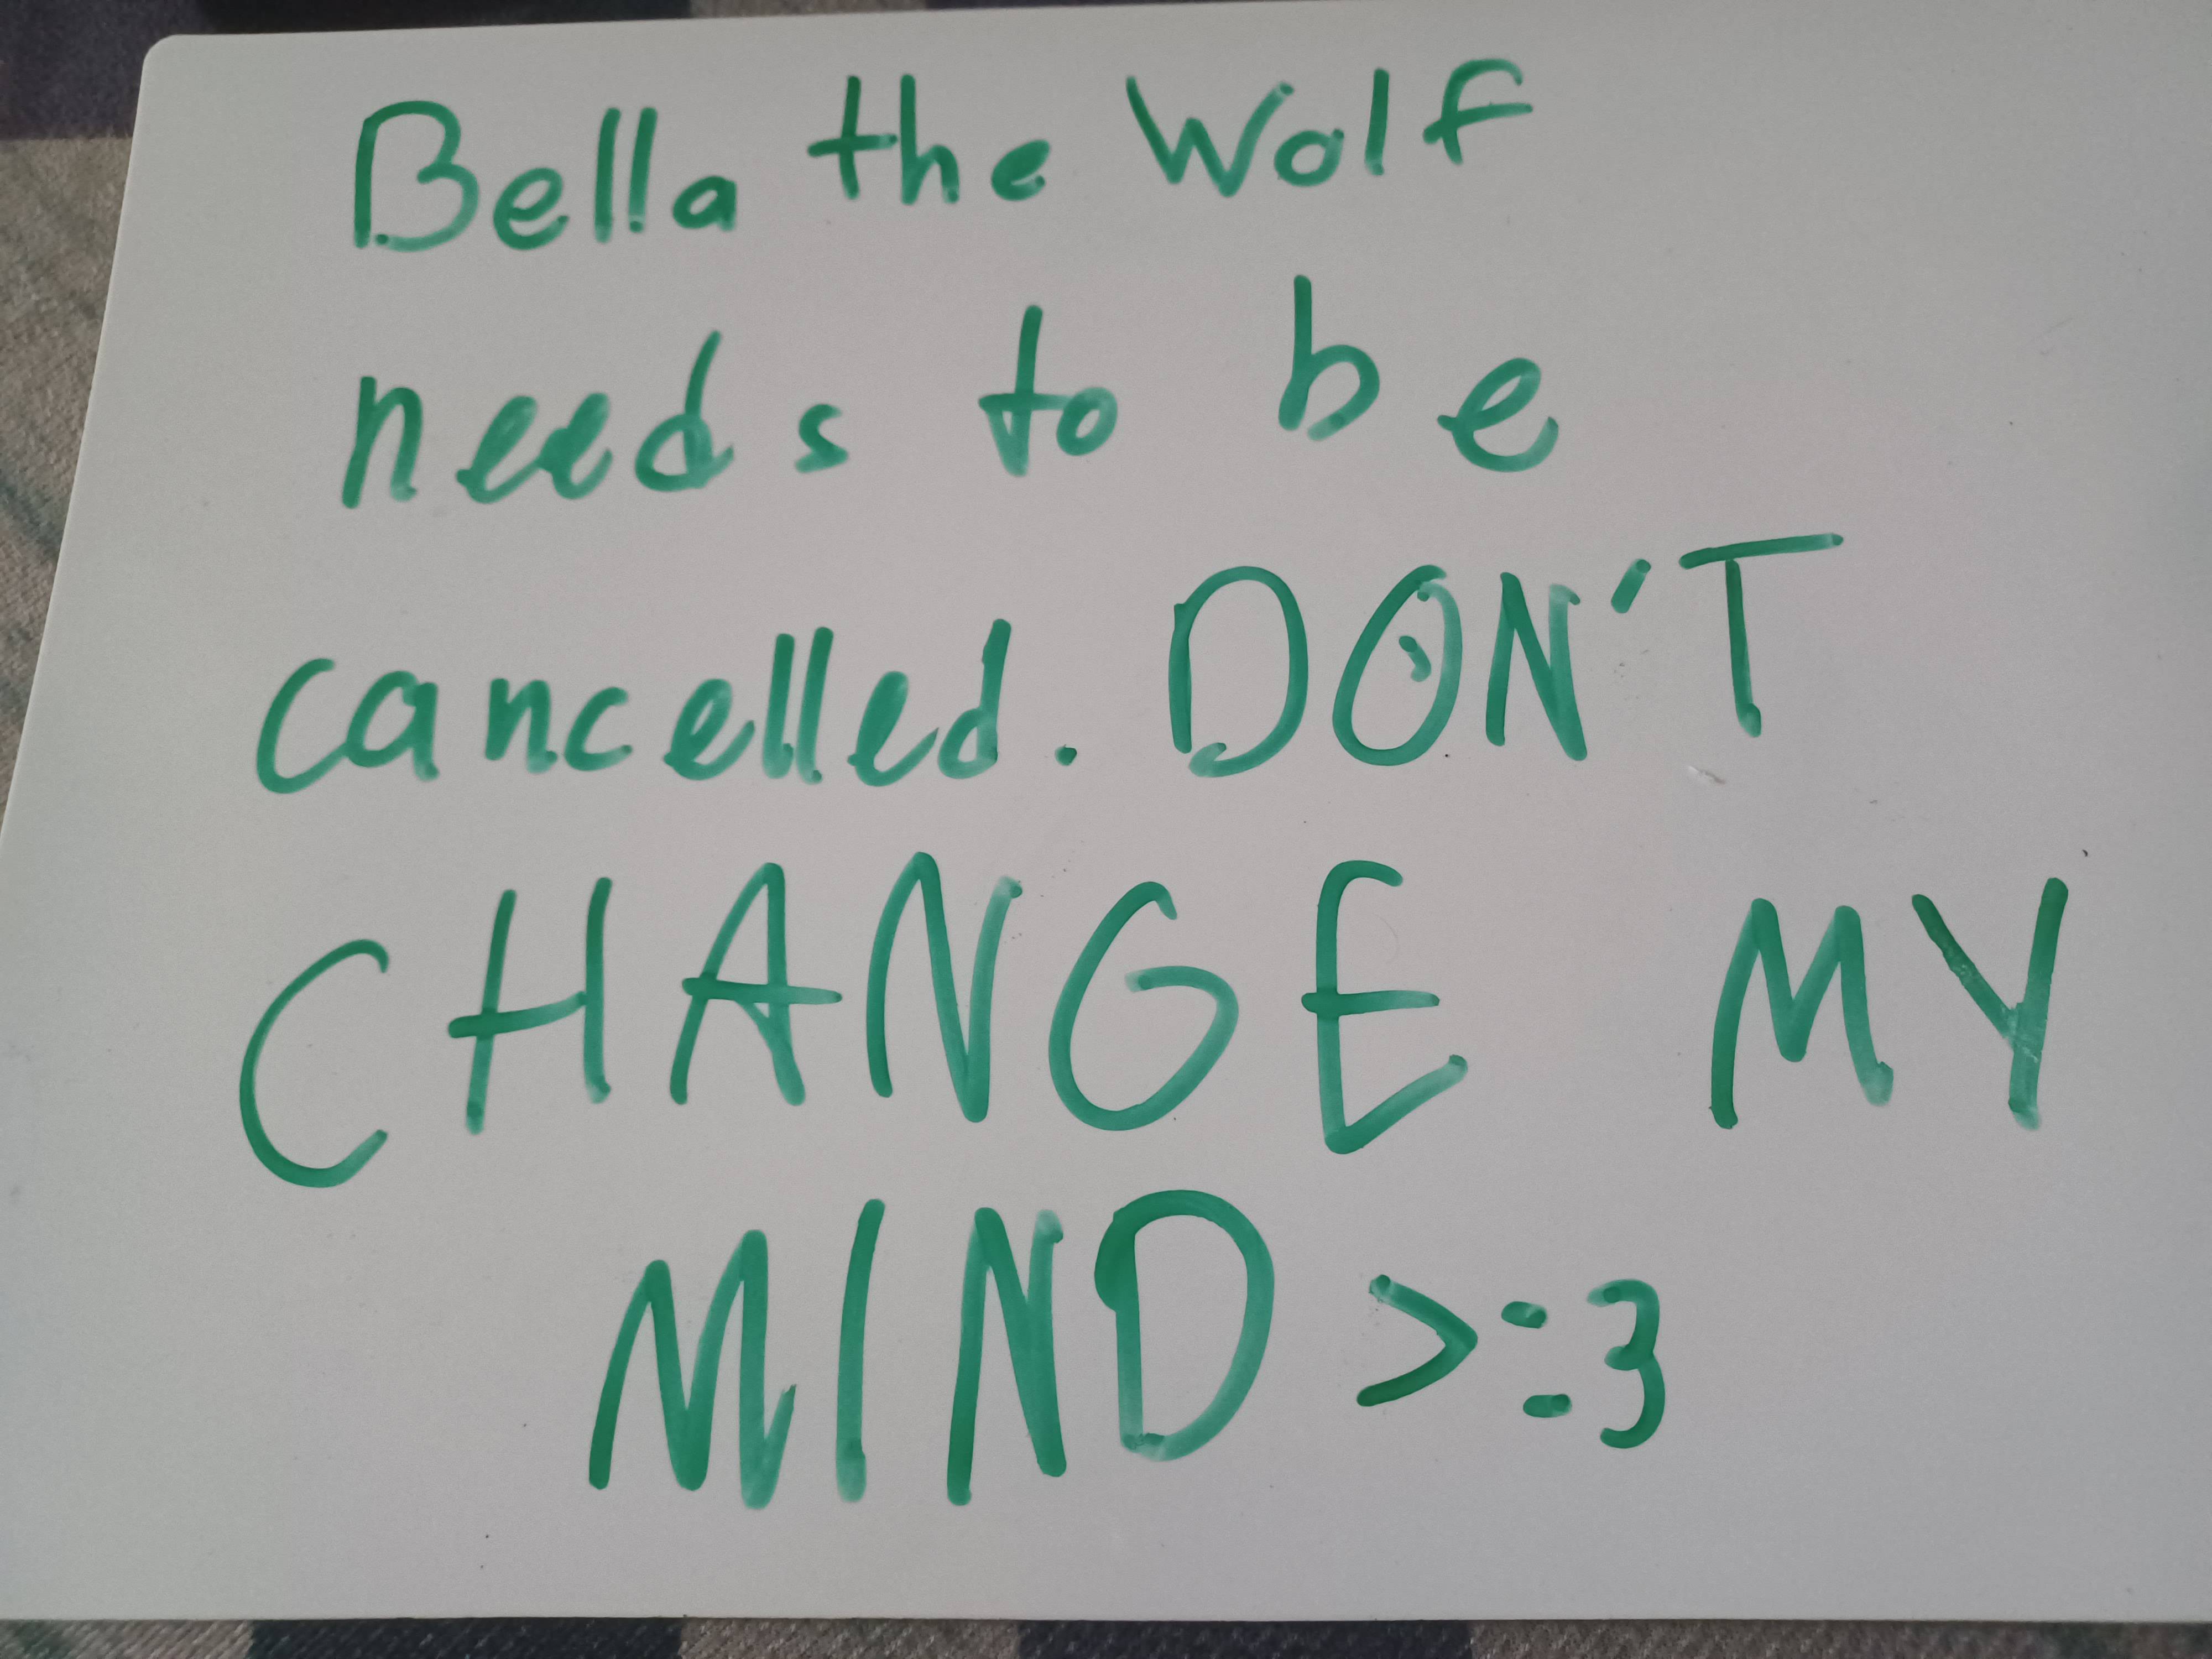 Bella the Wolf
needs to be
cancelled. DON'T
CHANGE MY
MIND >:3